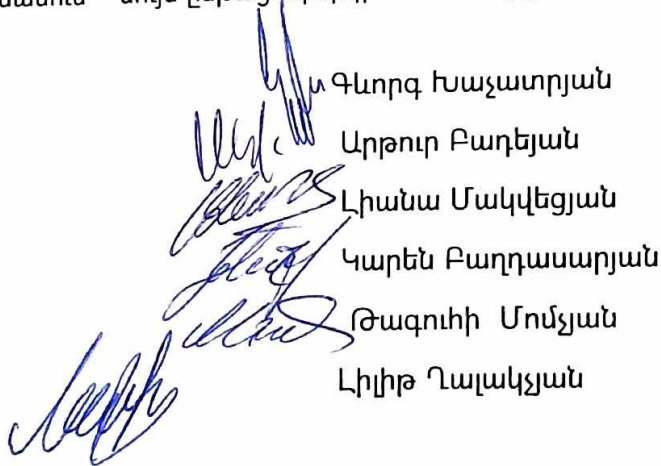 Գևորգ Խաչատրյան
Արթուր Բադեյան
Լիանա Մակվեցյան
Կարեն Բաղդասարյան
Թագուհի Մոմչյան
Լիլիթ Ղալակչյան